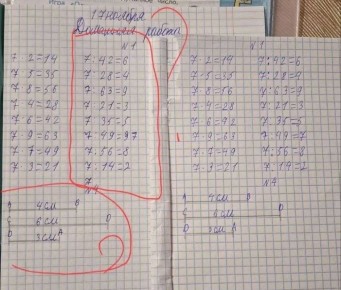 17 ноября
Домашняя работа
№1
7·2=14 7:42=6
7·5=35 7:28=4
7·8=56 7:63=9
7·4=28 7:21=3
7·6=42 7:35=5
7·9=63 7:49=
7·7=49 7:56=8
7·3=21 7:14=2
7:
№4
4см
6см
3см
№1
7·2=14 7:42=6
7·5=35 7:28=4
7·8=56 7:63=9
7·4=28 7:21=3
7·6=42 7:35=5
7·9=63 7:49=7
7·7=49 7:56=8
7·3=21 7:14=2
№4
4см
6см
3см